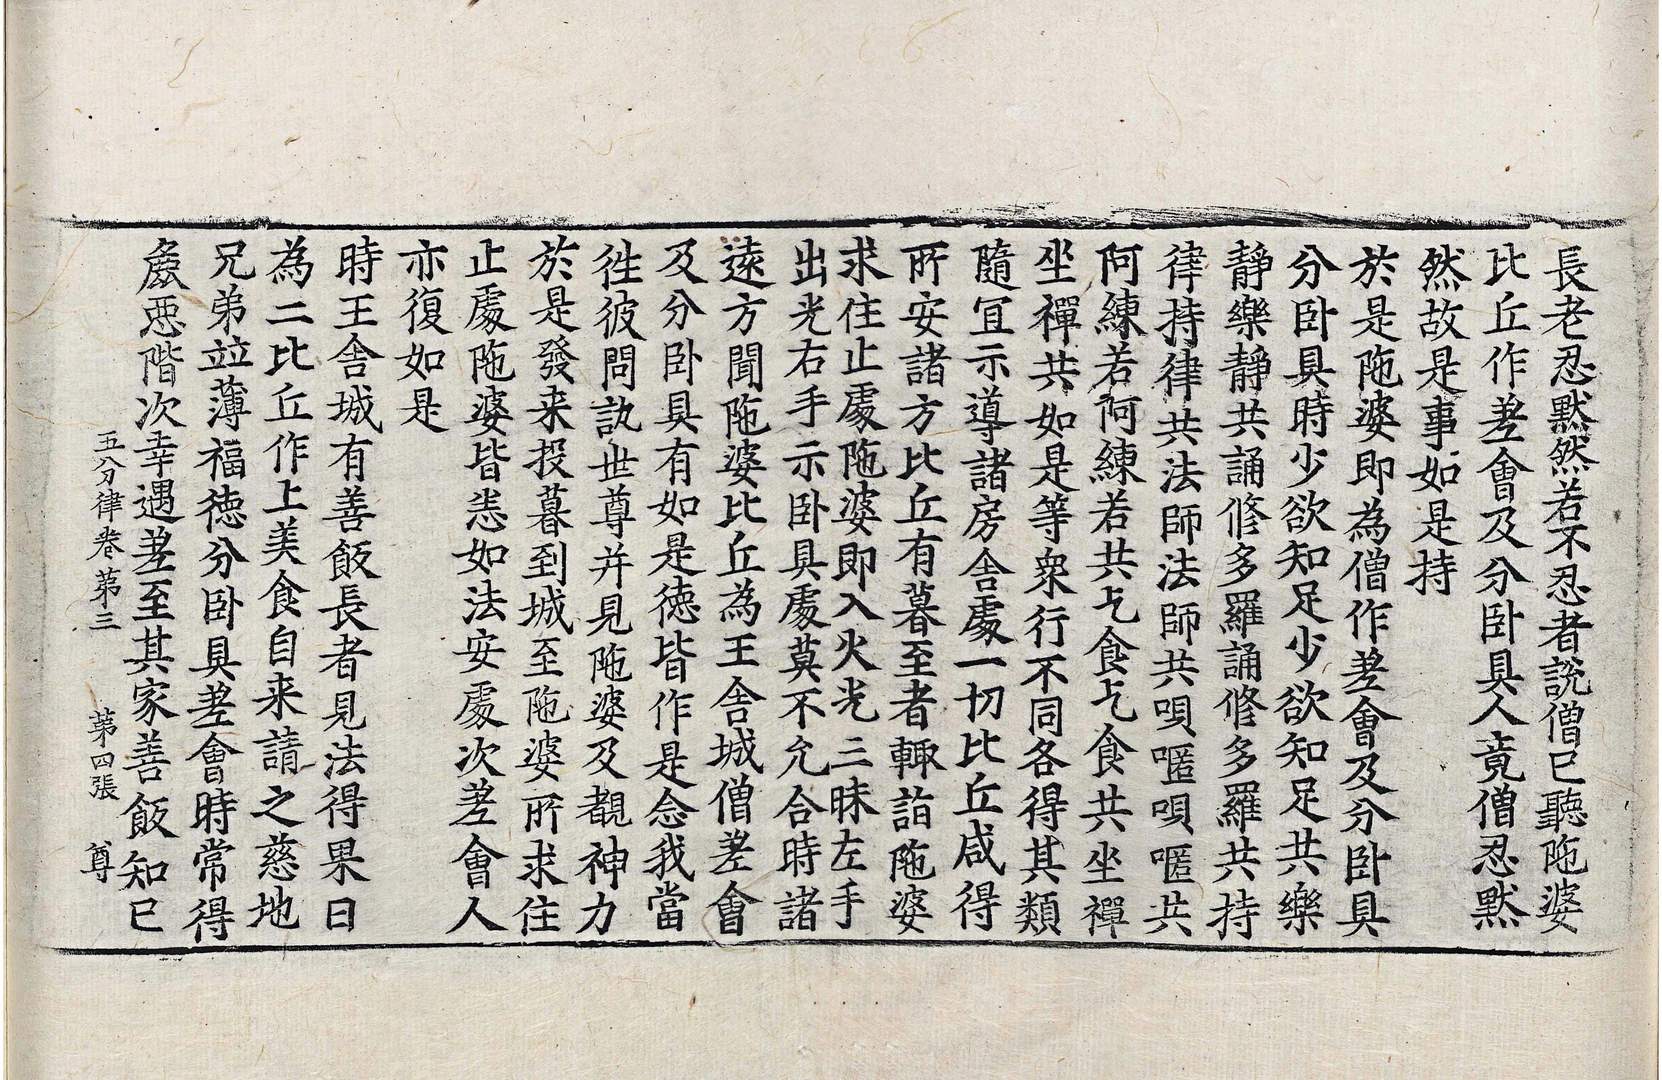 長老忍黙然若不忍者說僧已聽陁婆
比丘作差會及分卧具人竟僧忍黙
然故是事如是持
於是陁婆即為僧作差會及分卧具
分卧具時少欲知足少欲知足共樂
靜樂靜共誦修多羅誦修多羅共持
律持律共法師法師共唄匿唄匿共
阿練若阿練若共乞食乞食共坐禪
坐禪共如是等衆行不同各得其類
隨宜示導諸房舍處一切比丘咸得
所安諸方比丘有暮至者輙詣陁婆
求住止處陁婆即入火光三昧左手
出光右手示卧具處莫不允合時諸
遠方聞陁婆比丘為王舍城僧差會
及分卧具有如是德皆作是念我當
徃彼問訊世尊并見陁婆及覩神力
於是發来投暮到城至陁婆所求住
止處陁婆皆悉如法安處次差會人
亦復如是
時王舍城有善飯長者見法得果日
為二比丘作上美食自来請之慈地
兄弟竝薄福德分卧具差會時常得
麁惡階次幸遇差至其家善飯知已
五分律卷第三　第四張　尊